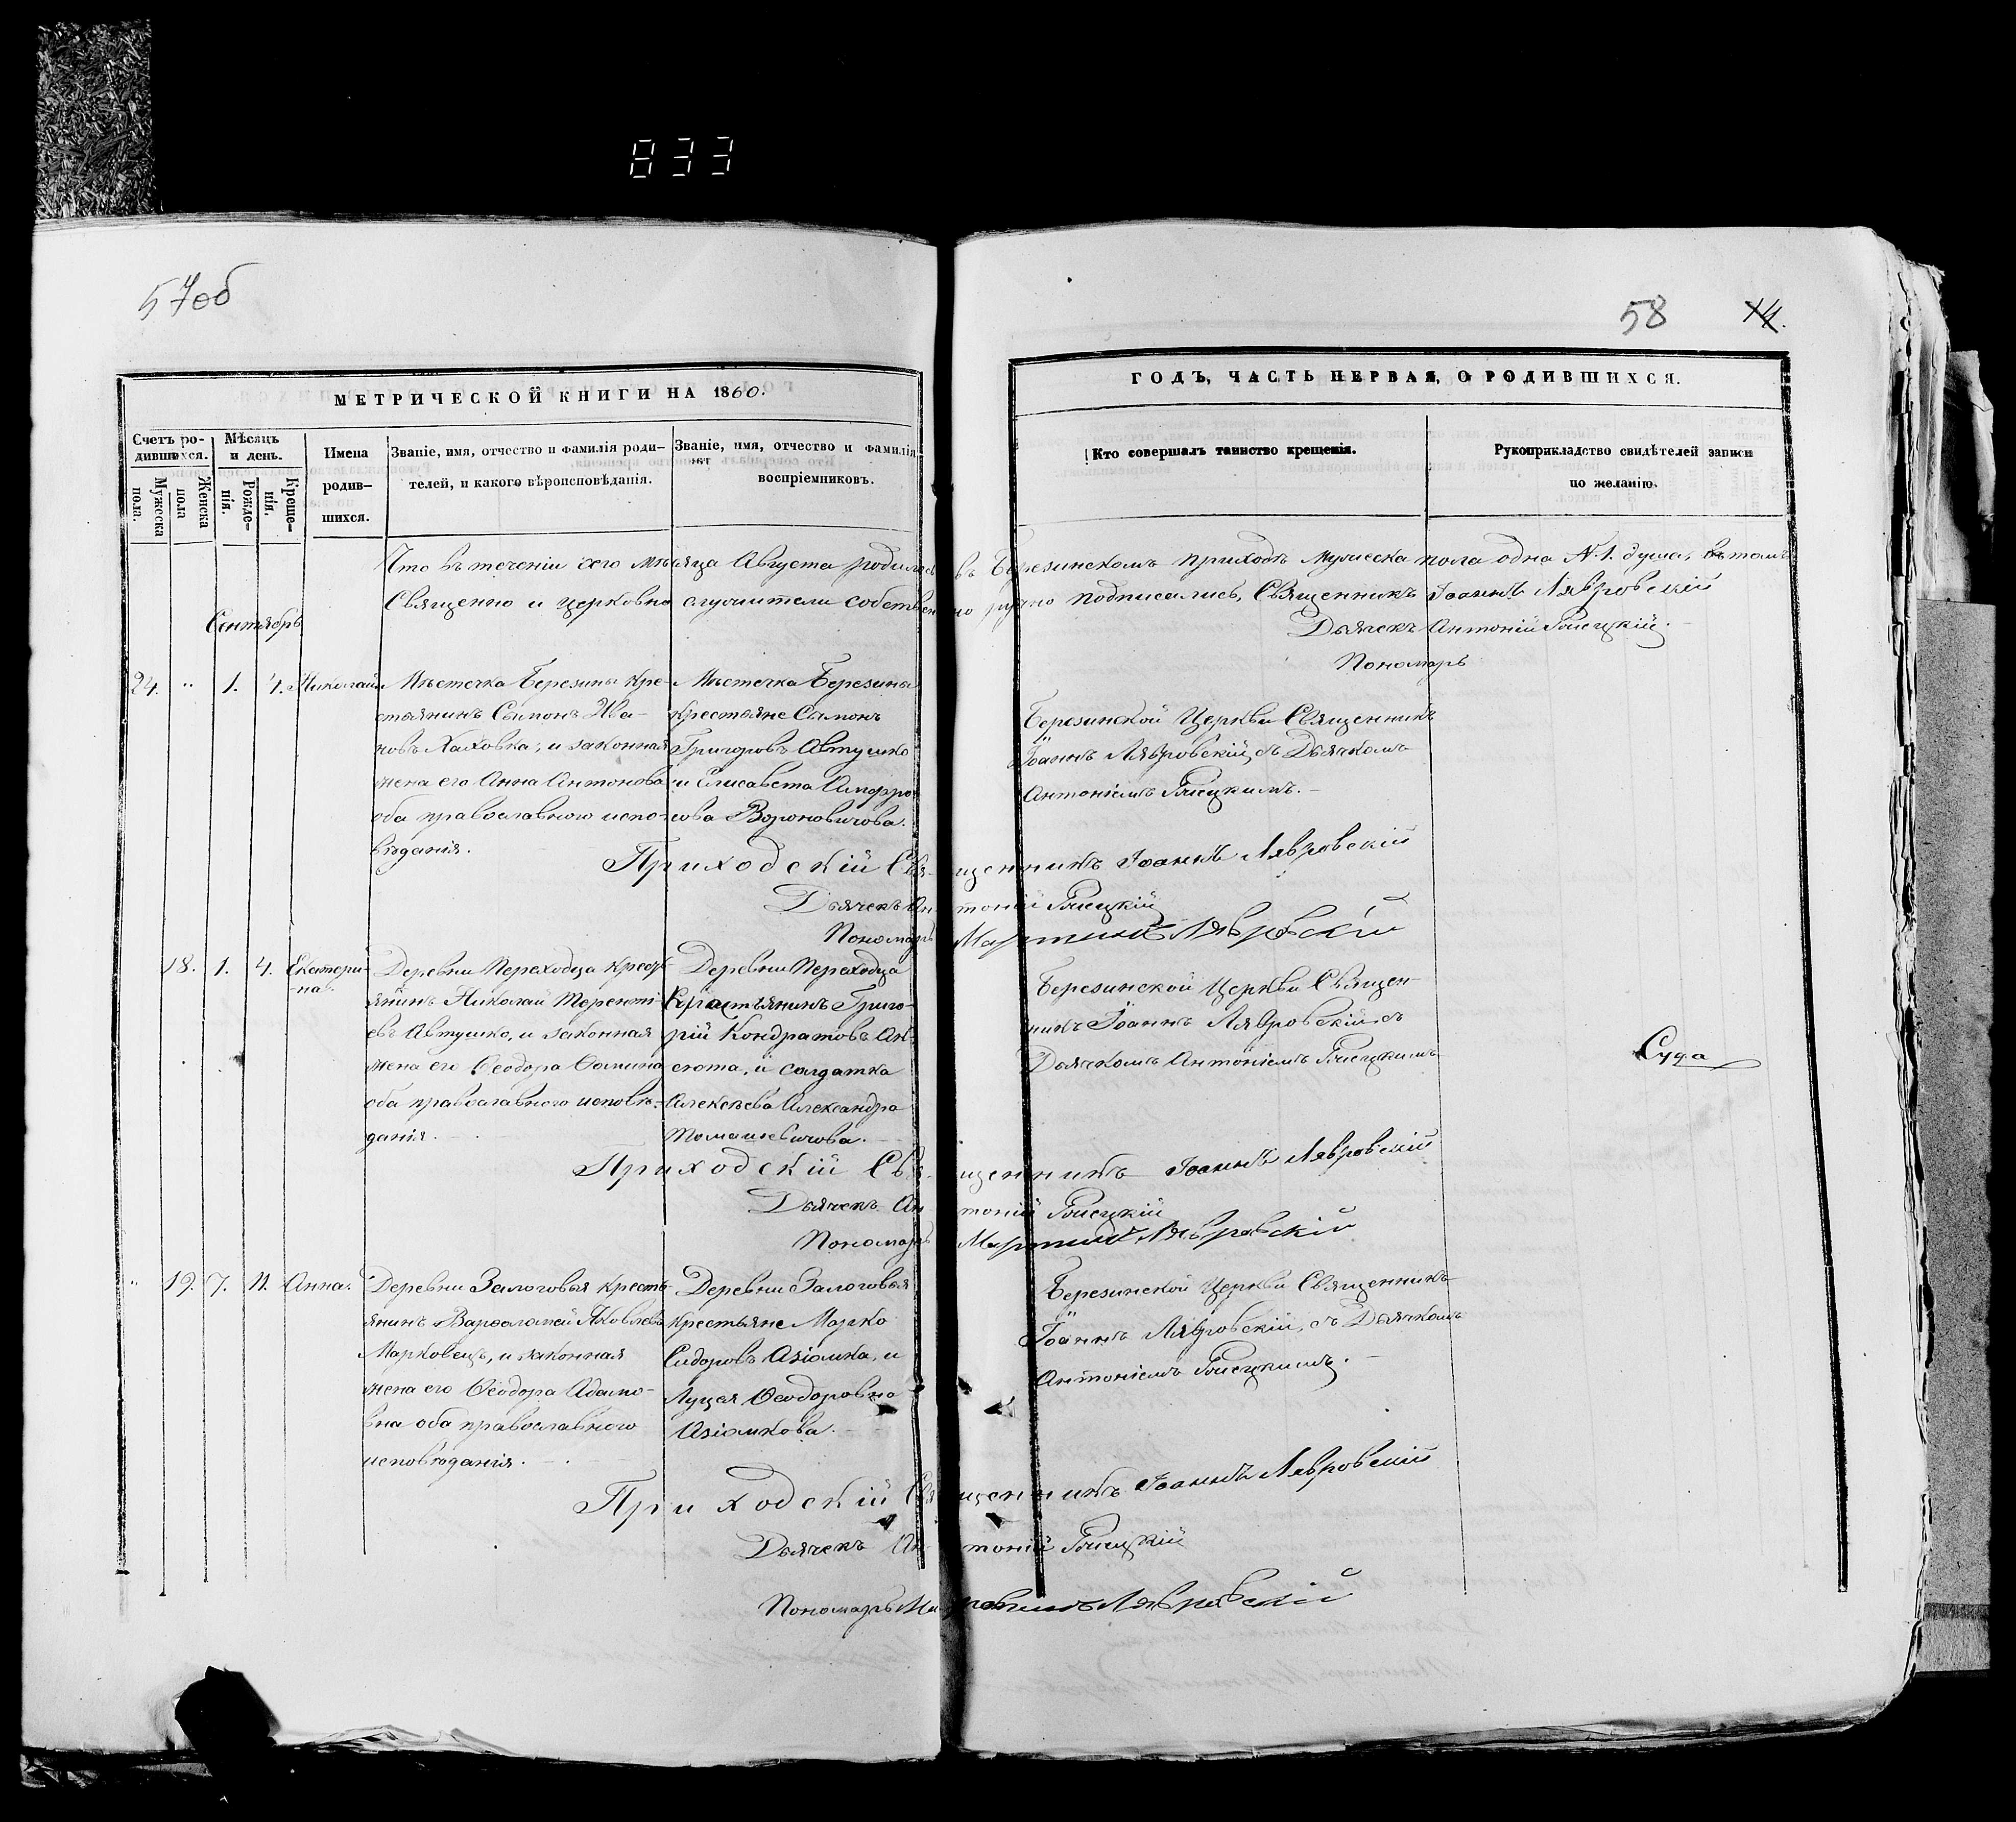 833
57об
58 14.
МЕТРИЧЕСКОЙ КНИГИ НА 1860.
ГОДЪ, ЧАСТЬ ПЕРВАЯ, О РОДИВШИХСЯ.
Счетъ ро-
дившихся.
Мужеска
пола.
Женска
пола
Мѣсяцъ
и день.
Рожде-
нія.
Креще-
нія.
Имена
родив-
шихся.
Званіе, имя, отчество и фамилія роди-
телей, и какого вѣроисповѣданія.
Званіе, имя, отчество и фамилія
воспріемниковъ.
Кто совершалъ таинство крещенія.
Рукоприкладство свидѣтелей записи
по желанію.
Что въ теченіи сего мѣсяца Августа родилась въ Березинскомъ приходѣ мужеска пола одна №1. душа, въ томъ
Священно и церковно служители собственно ручно подписались, Священникъ Іоаннъ Лявровскій
Дьячекъ Антоній
Пономарь
Сентябрь
24. " 1. 4. Николай
Мѣстечка Березины кре-
стьянинъ Сымонъ Ива-
новъ Халовка, и законная
жена его Анна Антонова
оба православного испо-
вѣданія.
Мѣстечка Березины
крестьяне Сымонъ
Григоровъ Автушко
и Елисавета
Вороновичова.
Березинской Церкви Священникъ
Іоаннъ Лявровскій съ Дьячкомъ
Антоніемъ
Приходскій Священникъ Іоаннъ Лявровскій
Дьячекъ Антоній
Пономарь Мартинъ Лявровскій
18. 1. 4. Екатери-
-на.
Деревни Переходца кресть
янинъ Николай Теренті-
евъ Автушко, и законная
жена его Ѳеодора Ѳомина
оба православного исповѣ-
данія.
Деревни Переходца
Крестьянинъ Григо-
рій Кондратовъ
и солдатка
Алексѣева Александра
Томашевичова.
Березинской Церкви Священ-
никъ Іоаннъ Лявровскій съ
Дьячкомъ Антоніемъ
Суда
Приходскій Священникъ Іоаннъ Лявровскій
Дьячекъ Антоній
Пономарь Мартинъ Лявровскій
" 19. 7. 11. Анна.
Деревни Залоговья кресть-
янинъ Варѳоломей Яковлевъ
Марковецъ, и законная
жена его Ѳеодора Адамо-
вна оба православного
исповѣданія.
Деревни Залоговья
крестьяне Марко
Сидоровъ Азіомка, и
Луцея Ѳеодоровна
Азіомкова.
Березинской Церкви Священникъ
Іоаннъ Лявровскій, съ Дьячкомъ
Антоніемъ
Приходскій Священникъ Іоаннъ Лявровскій
Дьячекъ Антоній
Пономарь Мартинъ Лявровскій